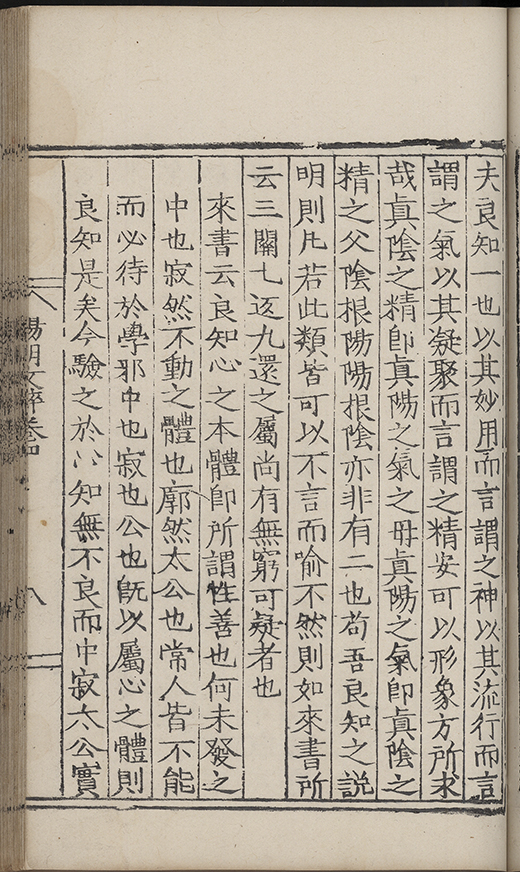 夫良知一也以其妙用而言謂之神以其流行而言
謂之氣以其凝聚而言謂之精安可以形象方所求
哉眞陰之精卽眞陽之氣之母眞陽之氣卽眞陰之
精之父陰根陽陽根陰亦非有二也苟吾良知之說
明則凡若此類皆可以不言而喻不然則如來書所
云三關七返九還之屬尚有無窮可疑者也
來書云良知心之本體卽所謂性善也何未發之
中也寂然不動之體也廓然太公也常人皆不能
而必待於學邪中也寂也公也旣以屬心之體則
良知是矣今驗之於心知無不良而中寂太公實
陽明文粹卷四
八